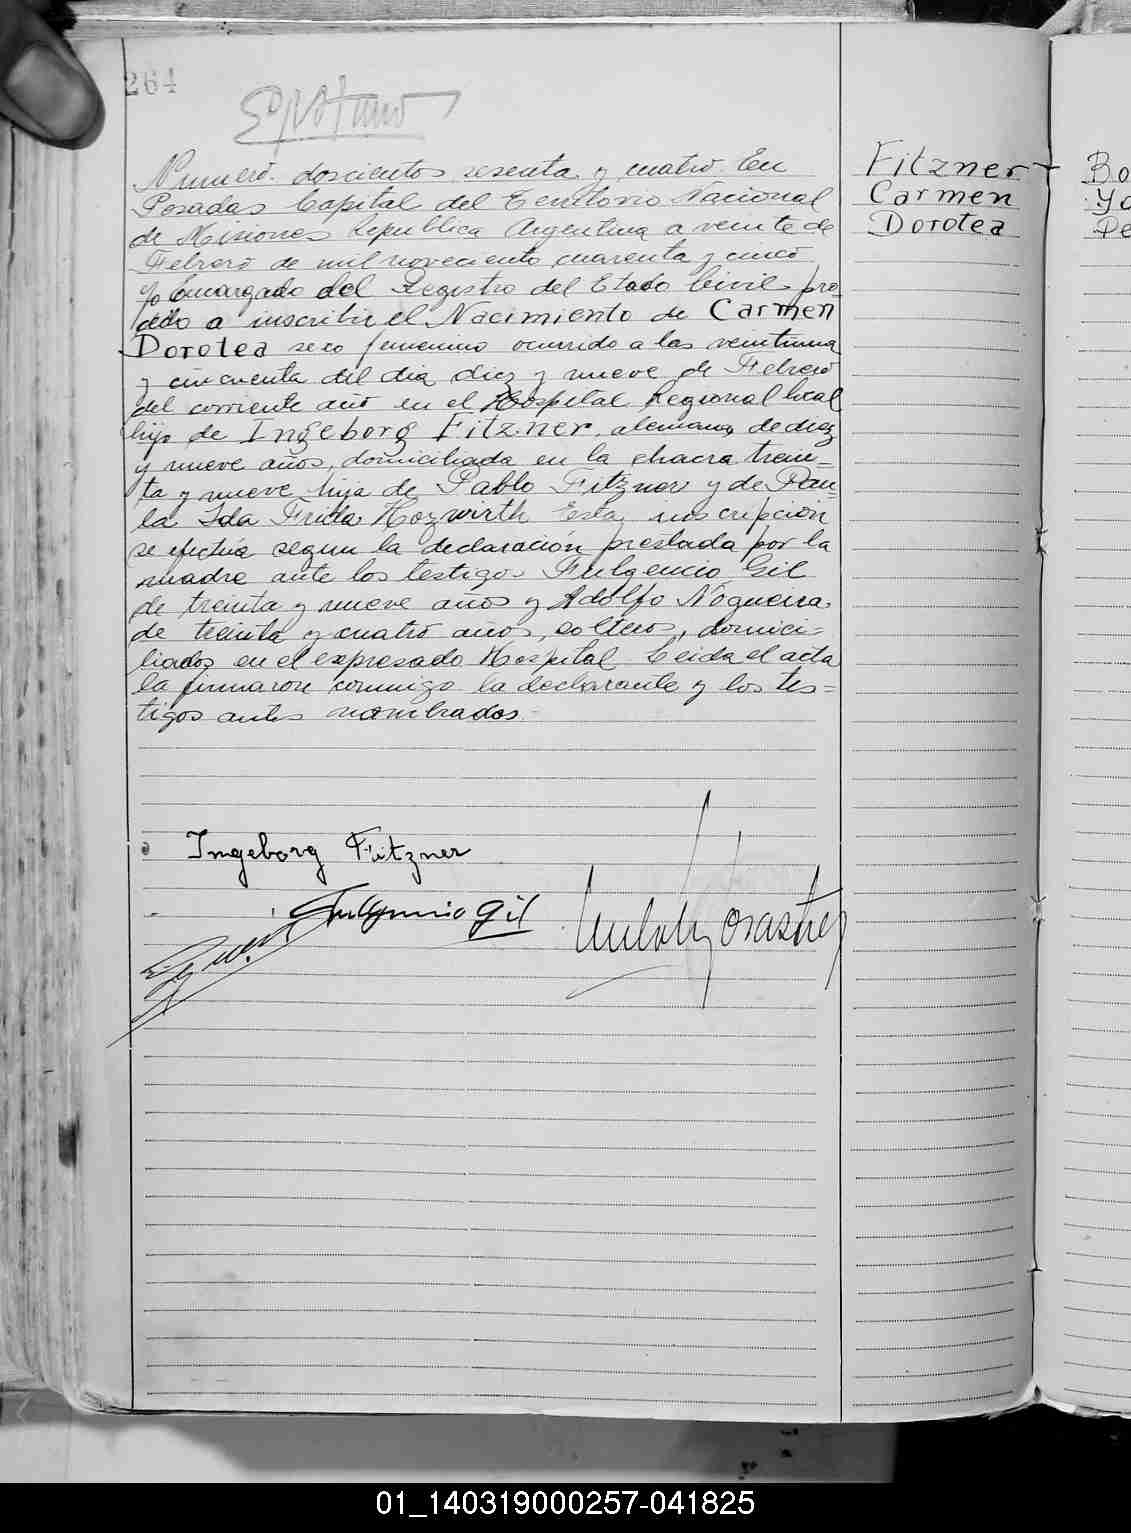 264
Numero doscientos sesenta y cuatro. En
Posadas Capital del Territorio Nacional
de Misiones Republica Argentina a veinte de
Febrero de mil noveciento cuarenta y cinco
yo Encargado del Registro del Estado Civil pro
cedo a inscribir el Nacimiento de Carmen
Dorotea sexo femenino ocurrido a las veintiuna
y cincuenta del dia diez y nueve de Febrero
del corriente año en el Hospital Regional local
hijo de Ingeborg Fitzner, alemana, de diez
y nueve años, domiciliada en la chacra trein=
ta y nueve, hija de Pablo Fitzner y de Pau=
la Ida Frida Hozwirth Esta inscripción
se efectúa segun la declaración prestada por la
madre ante los testigos Fulgencio Gil
de treinta y nueve años y Adolfo Nogueira,
de treinta y cuatro años, solteros, domici=
liados en el expresado Hospital. Leida el acta
la firmaron conmigo la declarante y los tes=
tigos antes nombrados.-
Ingeborg Fitzner
Fulgencio Gil
Fitzner
Carmen
Dorotea
Bo
Yo
De
01_140319000257-041825